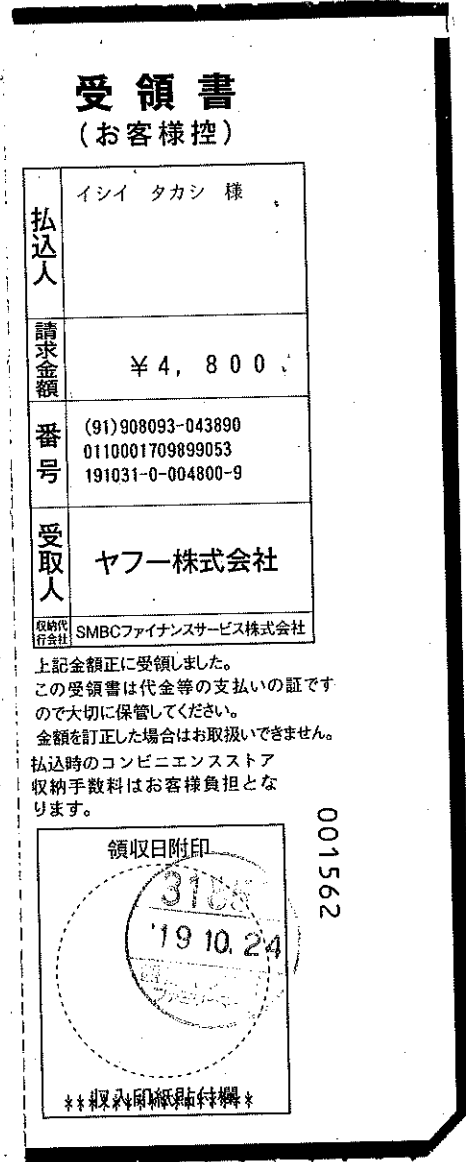 受領書
(お客様控)
払込人
イシイ タカシ 様
請求金額
¥4,800
番号
(91)908093-043890
0110001709899053
191031-0-004800-9
受取人
ヤフー株式会社
収納代行会社
SMBCファイナンスサービス株式会社
上記金額正に受領しました。
この受領書は代金等の支払いの証です
ので大切に保管してください。
金額を訂正した場合はお取扱いできません。
払込時のコンビニエンスストア
収納手数料はお客様負担とな
ります。
001562
領収日附印
'19 10.24
ファミリーマ